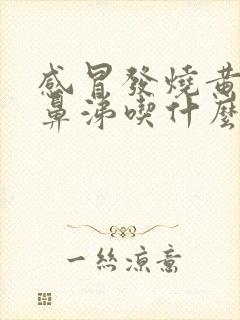 感冒發燒黄
鼻涕喫什麽
一絲涼意